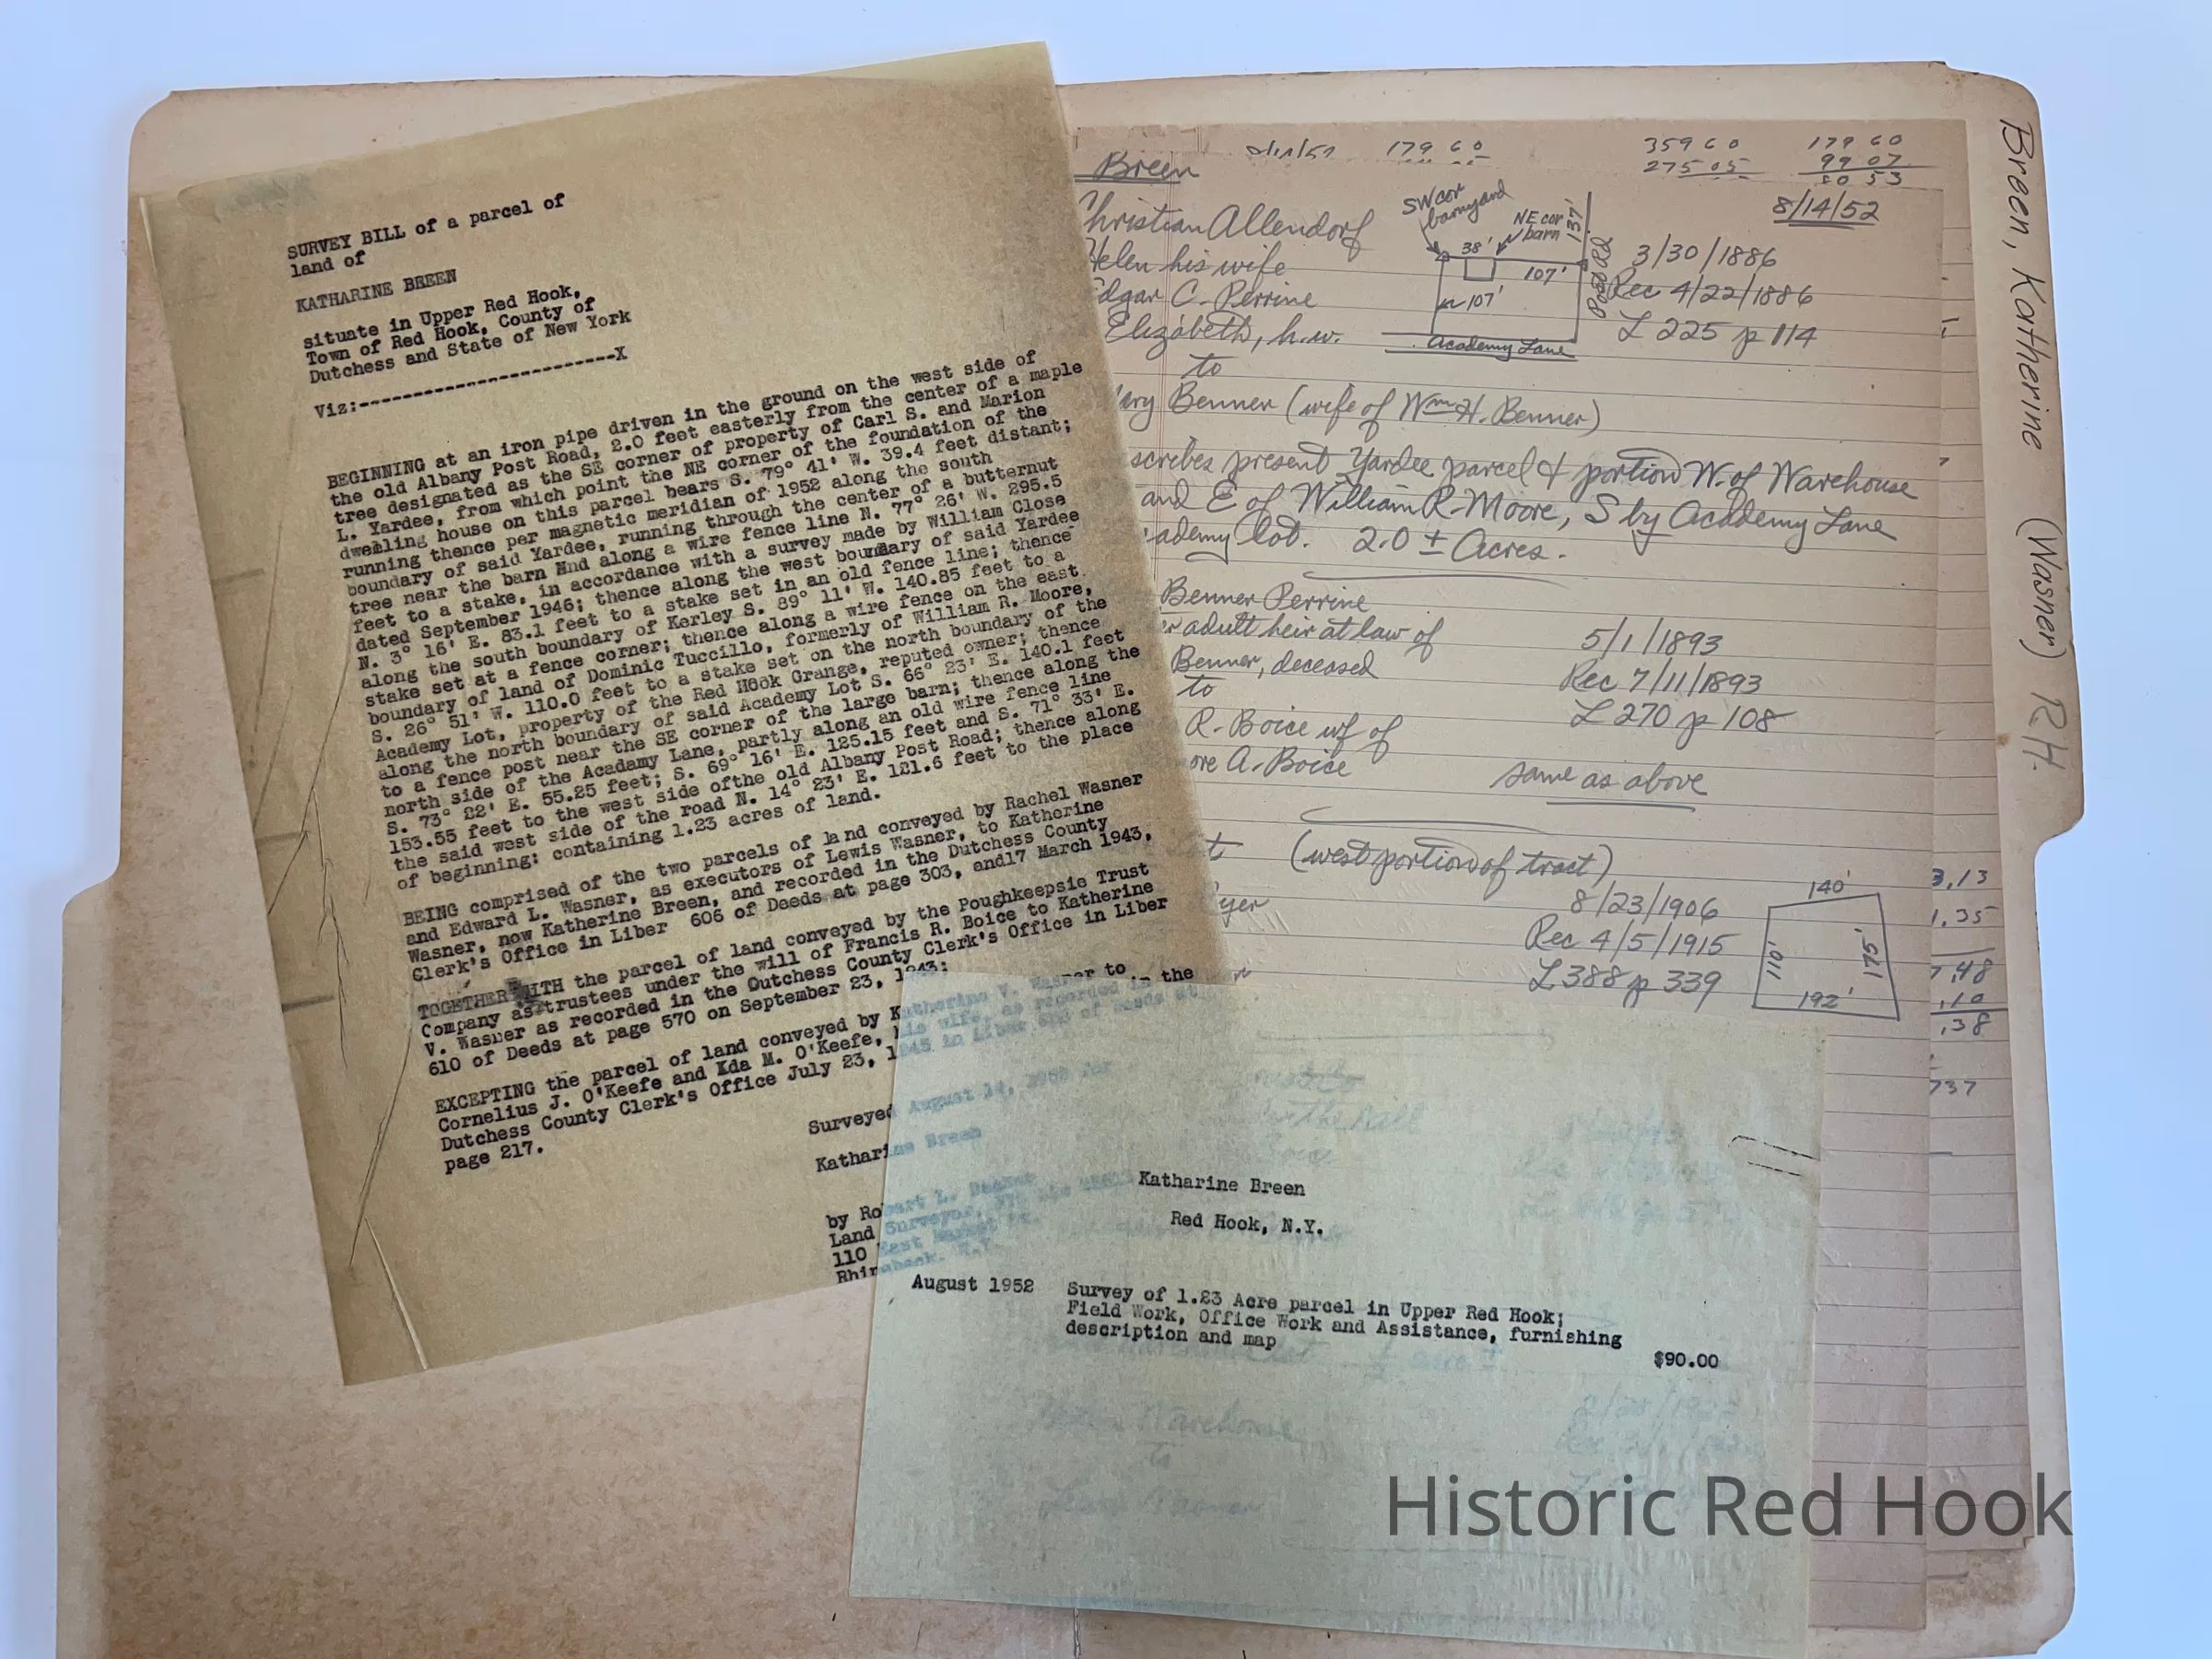 SURVEY BILL of a parcel of
land of
KATHARINE BREEN
situate in Upper Red Hook,
Town of Red Hook, County of
Dutchess and State of New York
Viz:-------------------------X
BEGINNING at an iron pipe driven in the ground on the west side of
the old Albany Post Road, 2.0 feet easterly from the center of a maple
tree designated as the SE corner of property of Carl S. and Marion
L. Yardee, from which point the NE corner of the foundation of the
dwelling house on this parcel bears S. 79° 41' W. 39.4 feet distant;
running thence per magnetic meridian of 1952 along the south
boundary of said Yardee, running through the center of a butternut
tree near the barn and along a wire fence line N. 77° 26' W. 295.5
feet to a stake, in accordance with a survey made by William Close
dated September 1946; thence along the west boundary of said Yardee
N. 3° 16' E. 83.1 feet to a stake set in an old fence line; thence
along the south boundary of Kerley S. 89° 11' W. 140.85 feet to a
stake set at a fence corner; thence along a wire fence on the east
boundary of land of Dominic Tuccillo, formerly of William R. Moore,
S. 26° 51' W. 110.0 feet to a stake set on the north boundary of the
Academy Lot, property of the Red Hook Grange, reputed owner; thence
along the north boundary of said Academy Lot S. 66° 23' E. 140.1 feet
to a fence post near the SE corner of the large barn; thence along the
north side of the Acadamy Lane, partly along an old wire fence line
S. 73° 22' E. 55.25 feet; S. 69° 16' E. 125.15 feet and S. 71° 33' E.
153.55 feet to the west side ofthe old Albany Post Road; thence along
the said west side of the road N. 14° 23' E. 121.6 feet to the place
of beginning: containing 1.23 acres of land.
BEING comprised of the two parcels of land conveyed by Rachel Wasner
and Edward L. Wasner, as executors of Lewis Wasner, to Katherine
Wasner, now Katherine Breen, and recorded in the Dutchess County
Clerk's Office in Liber 606 of Deeds at page 303, and17 March 1943,
TOGETHER WITH the parcel of land conveyed by the Poughkeepsie Trust
Company as trustees under the will of Francis R. Boice to Katherine
V. Wasner as recorded in the Dutchess County Clerk's Office in Liber
610 of Deeds at page 570 on September 23, 1943;
EXCEPTING the parcel of land conveyed by Katherine V. Wasner to
Cornelius J. O'Keefe and Ida M. O'Keefe, his wife, as recorded in the
Dutchess County Clerk's Office July 23, 1945 in Liber of Deeds at
page 217.
Surveyed August 14, 1952 for
Katharine Breen
by Robert L.
Land Surveyor,
110 East Market St.
Rhinebeck, N.Y.
Breen
179 60
359 60
275 05
179 60
99 07
80 53
8/14/52
Christian Allendorf
Helen his wife
Edgar C. Perrine
Elizabeth, h.w.
to
Mary Benner (wife of Wm H. Benner)
SW cor
barnyard
NE cor
barn
38'
137'
107'
107'
Post Road
Academy Lane
3/30/1886
Rec 4/22/1886
L 225 p 114
scribes present Yardee parcel & portion W. of Warehouse
and E of William R. Moore, S by Academy Lane
ademy Lot. 2.0 ± Acres.
Benner Perrine
adult heir at law of
Benner, deceased
to
R. Boice wf of
ore A. Boice
5/1/1893
Rec 7/11/1893
L 270 p 108
same as above
(west portion of tract)
yer
8/23/1906
Rec 4/5/1915
L 388 p 339
140'
110'
175'
192'
3,13
1,35
7,48
,10
,38
737
Breen, Katherine (Wasner) R.H.
Katharine Breen
Red Hook, N.Y.
August 1952 Survey of 1.23 Acre parcel in Upper Red Hook;
Field Work, Office Work and Assistance, furnishing
description and map
$90.00
Warehouse
to
Wasner
Historic Red Hook